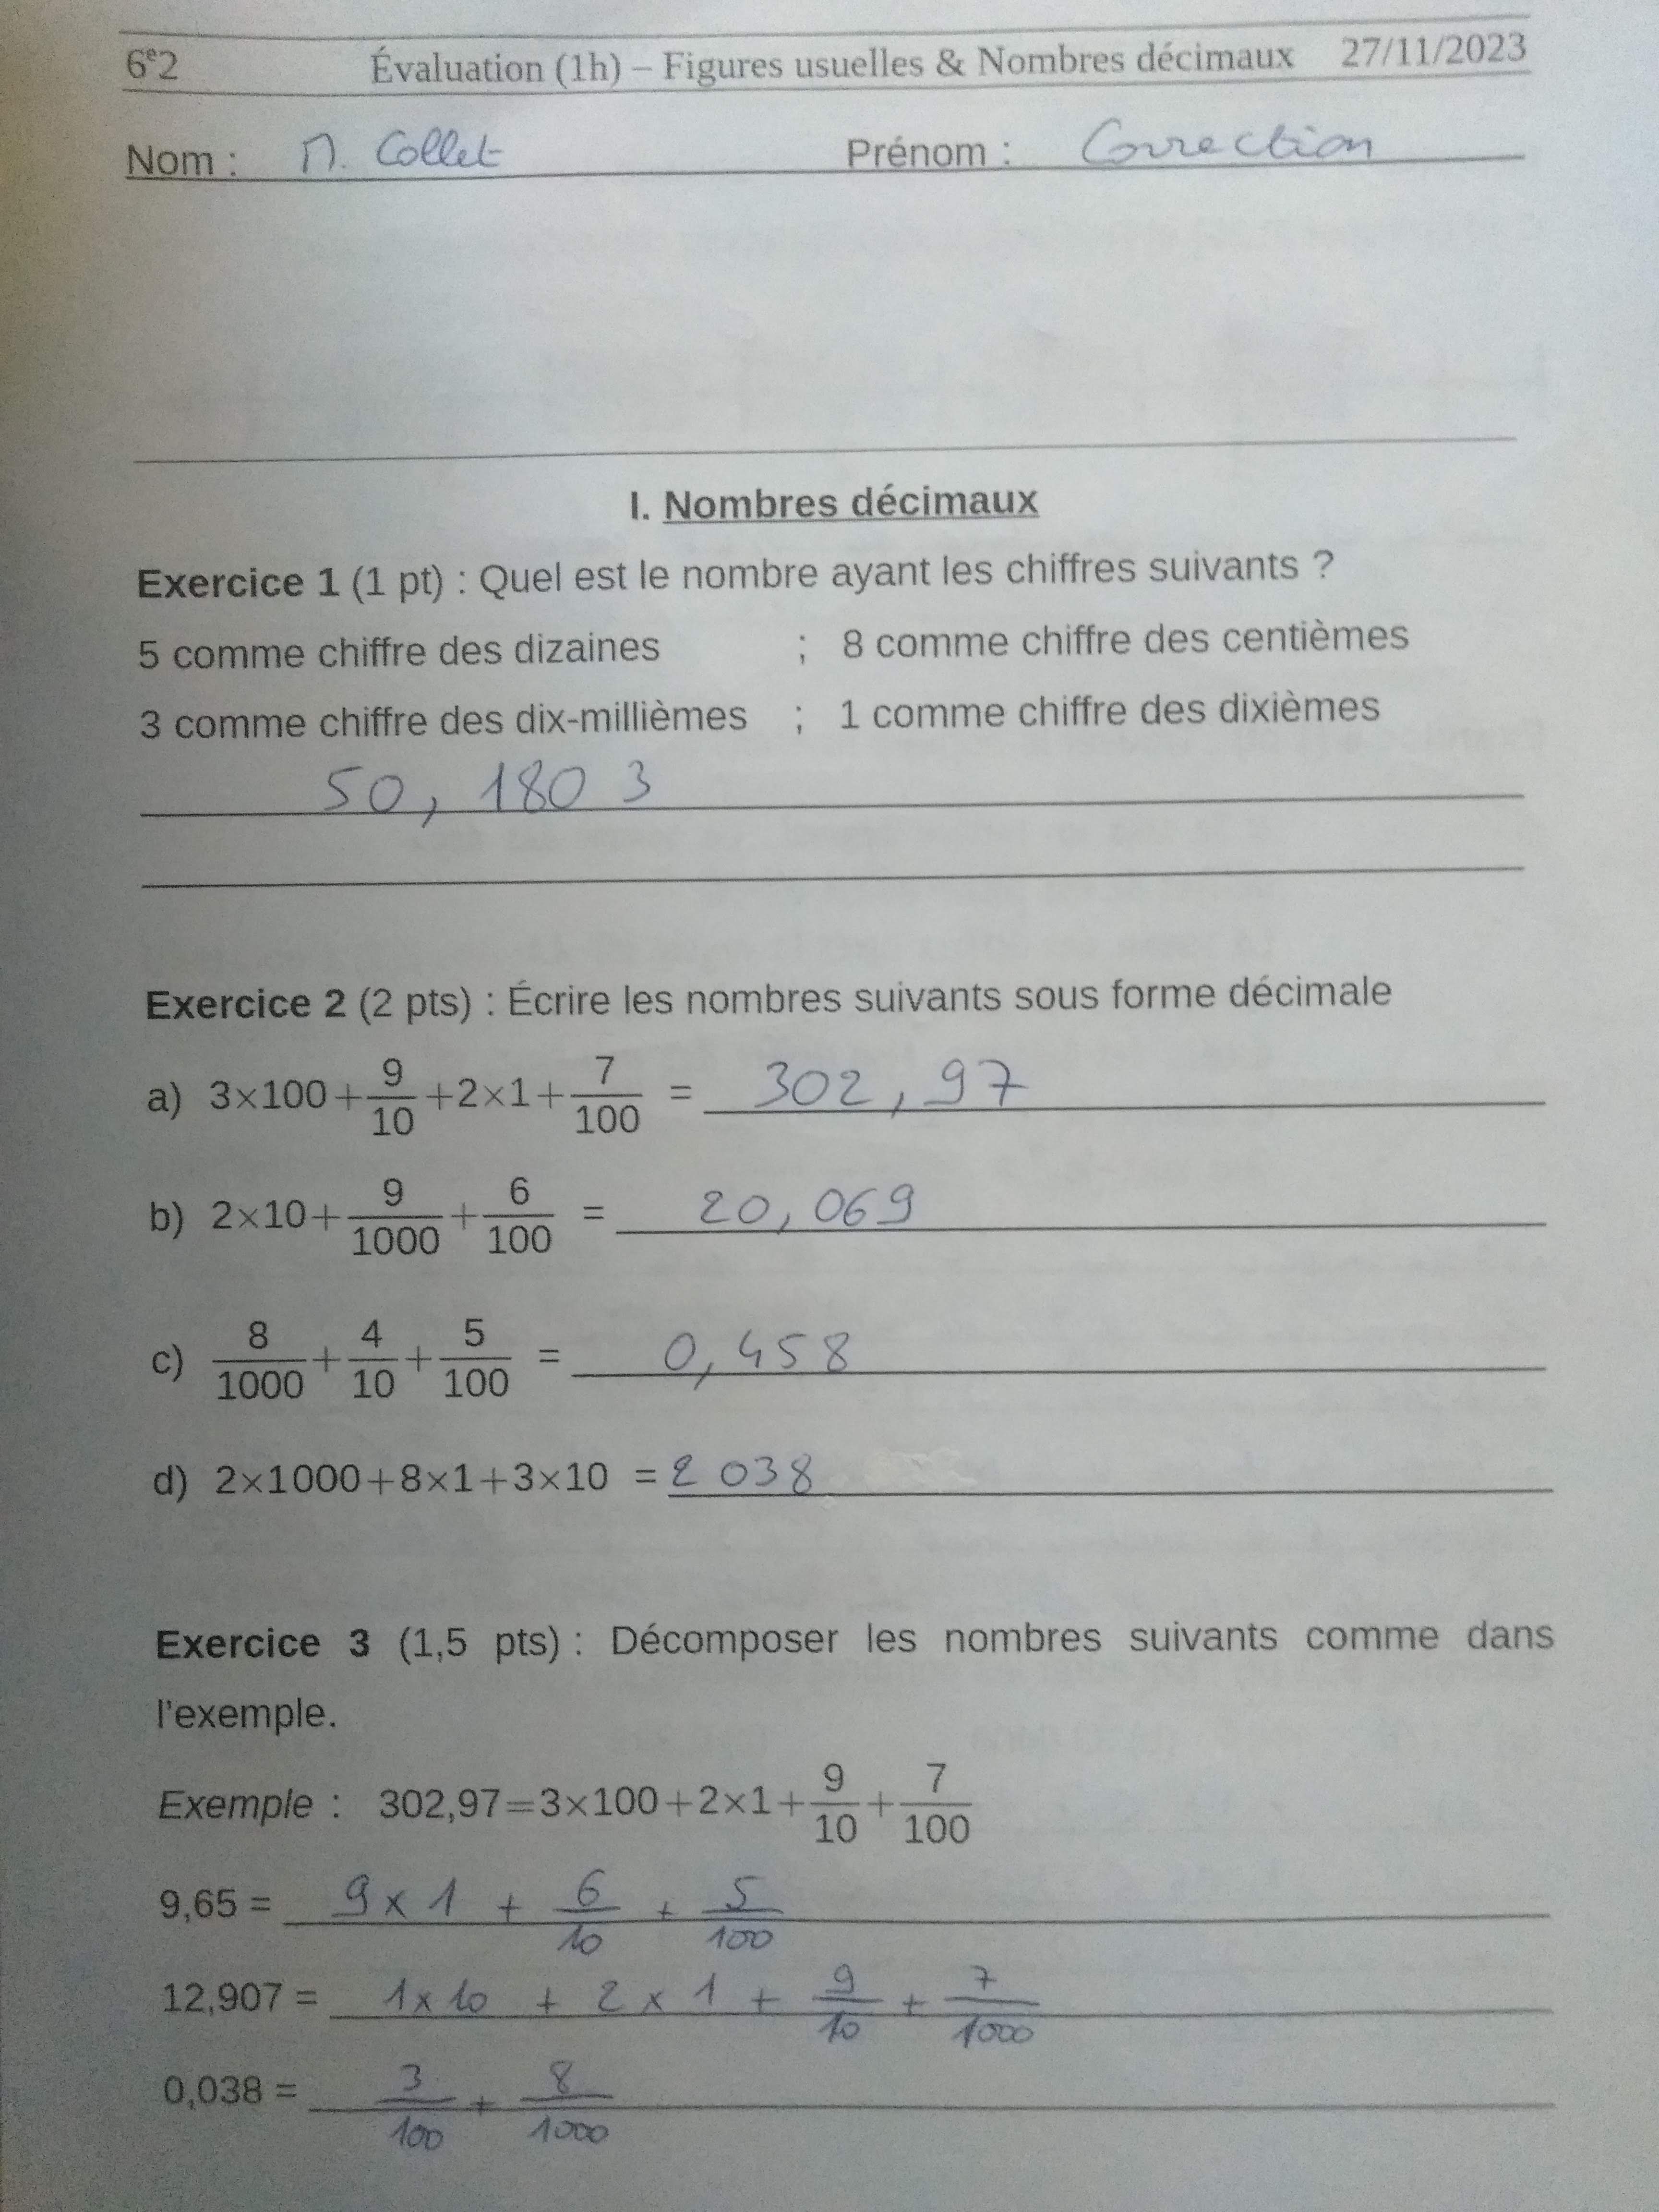 6e2 Évaluation (1h) – Figures usuelles & Nombres décimaux 27/11/2023
Nom : M. Collet Prénom : Correction
I. Nombres décimaux
Exercice 1 (1 pt) : Quel est le nombre ayant les chiffres suivants ?
5 comme chiffre des dizaines ; 8 comme chiffre des centièmes
3 comme chiffre des dix-millièmes ; 1 comme chiffre des dixièmes
50,1803
Exercice 2 (2 pts) : Écrire les nombres suivants sous forme décimale
a) 3×100+9/10+2×1+7/100 = 302,97
b) 2×10+9/1000+6/100 = 20,069
c) 8/1000+4/10+5/100 = 0,458
d) 2×1000+8×1+3×10 = 2 038
Exercice 3 (1,5 pts) : Décomposer les nombres suivants comme dans
l'exemple.
Exemple : 302,97=3×100+2×1+9/10+7/100
9,65 = 9×1 + 6/10 + 5/100
12,907 = 1×10 + 2×1 + 9/10 + 7/1000
0,038 = 3/100 + 8/1000